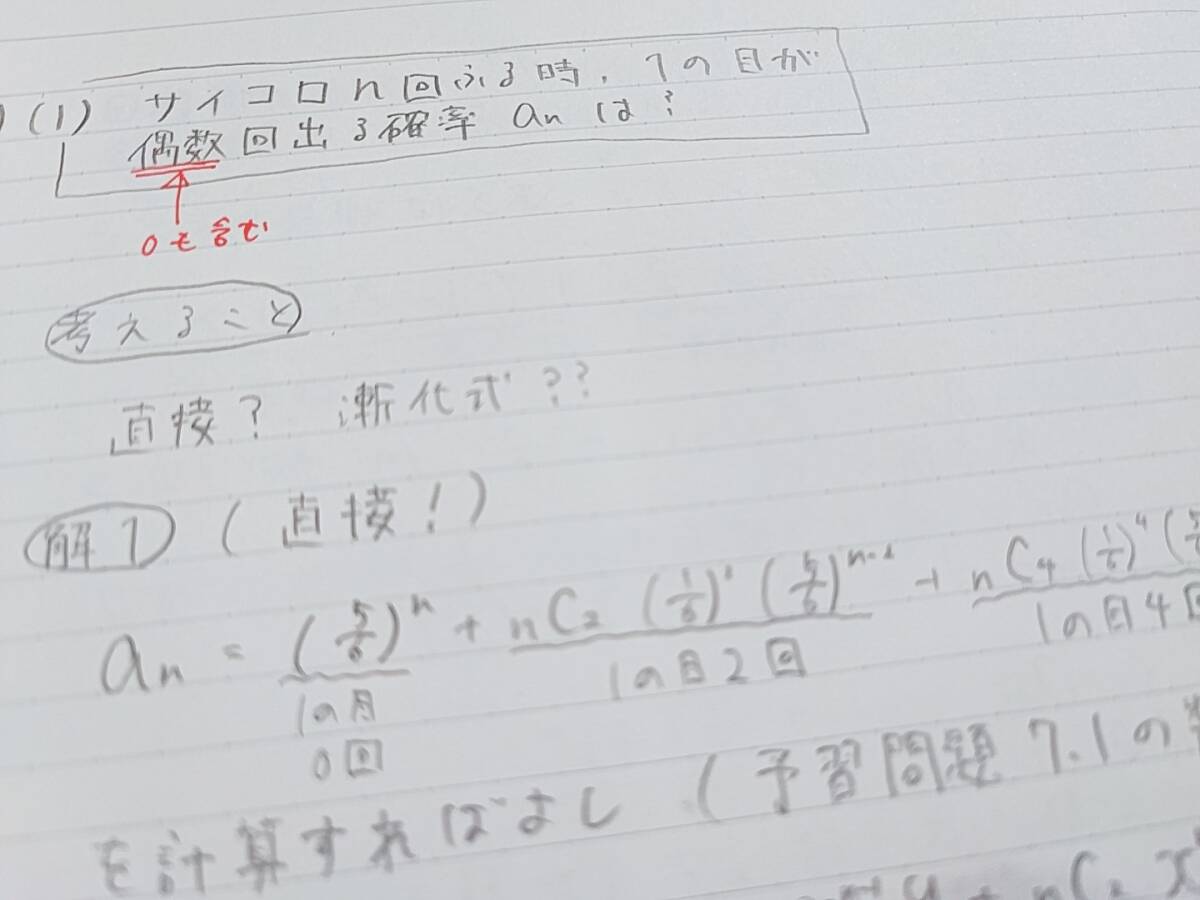 (1) サイコロn回ふる時、1の目が
偶数回出る確率 an は?
0も含む
考えること
直接? 漸化式??
解1 (直接!)
an = (5/6)^n + nC2 (1/6)^2 (5/6)^{n-2} + nC4 (1/6)^4 (5/6
1の目 1の目2回 1の目4回
0回
を計算すればよし (予習問題7.1の
+ nC2 x